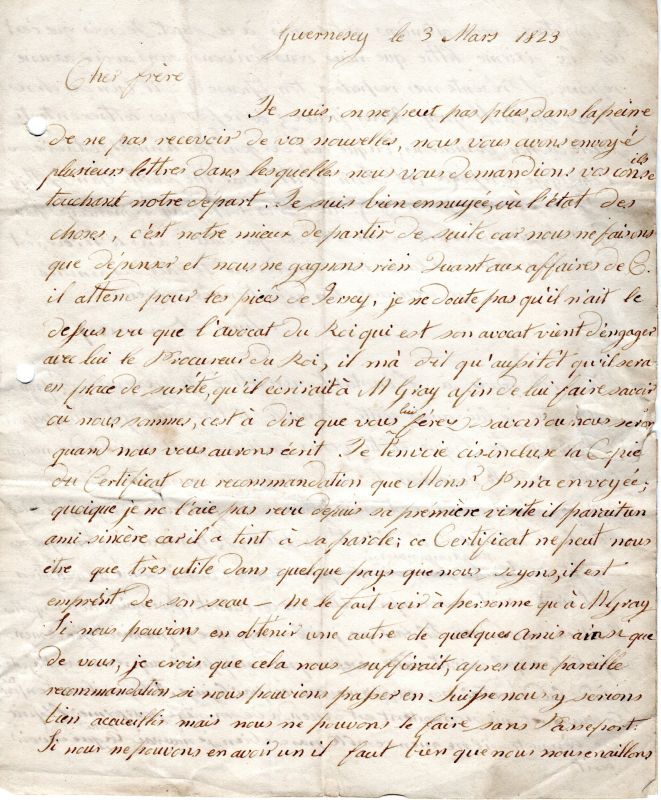 Guernesey le 3 Mars 1823
Cher frère
Je suis, on ne peut pas plus, dans la peine
de ne pas recevoir de vos nouvelles, nous vous avons envoyé
plusieurs lettres dans lesquelles nous vous demandions vos conseils
touchant notre depart. Je suis bien ennuyée, vû l'état des
choses, c'est notre mieux de partir de suite car nous ne faisons
que dépenser et nous ne gagnons rien Quant aux affaires de C.
il attend pour les pieces de Jersey, je ne doute pas qu'il n'ait le
dessus vu que l'avocat du Roi qui est son avocat vient d'engager
avec lui le Procureur du Roi, il m'à dit qu'aussitôt qu'il sera
en place de sureté, qu'il écrirait à M Gray afin de lui faire savoir
où nous sommes, c'est à dire que vous lui férez savoir où nous serons
quand nous vous aurons écrit Je t'envoie ci incluse la Copie
du Certificat ou recommandation que Monsr. P m'a envoyée;
quoique je ne l'aie pas revu depuis sa première visite il parait un
ami sincère car il a tint à sa parole; ce Certificat ne peut nous
etre que très utile dans quelque pays que nous soyons, il est
empreint de son seau — ne le fait voir à personne qu'à M Gray
Si nous pouvions en obtenir une autre de quelques amis ainsi que
de vous, je crois que cela nous suffirait, apres une pareille
recommandation si nous pouvions passer en Suisse nous y serions
bien accueillis mais nous ne pouvons le faire sans Passeport.
Si nous ne pouvons en avoir un il faut bien que nous nous en allions